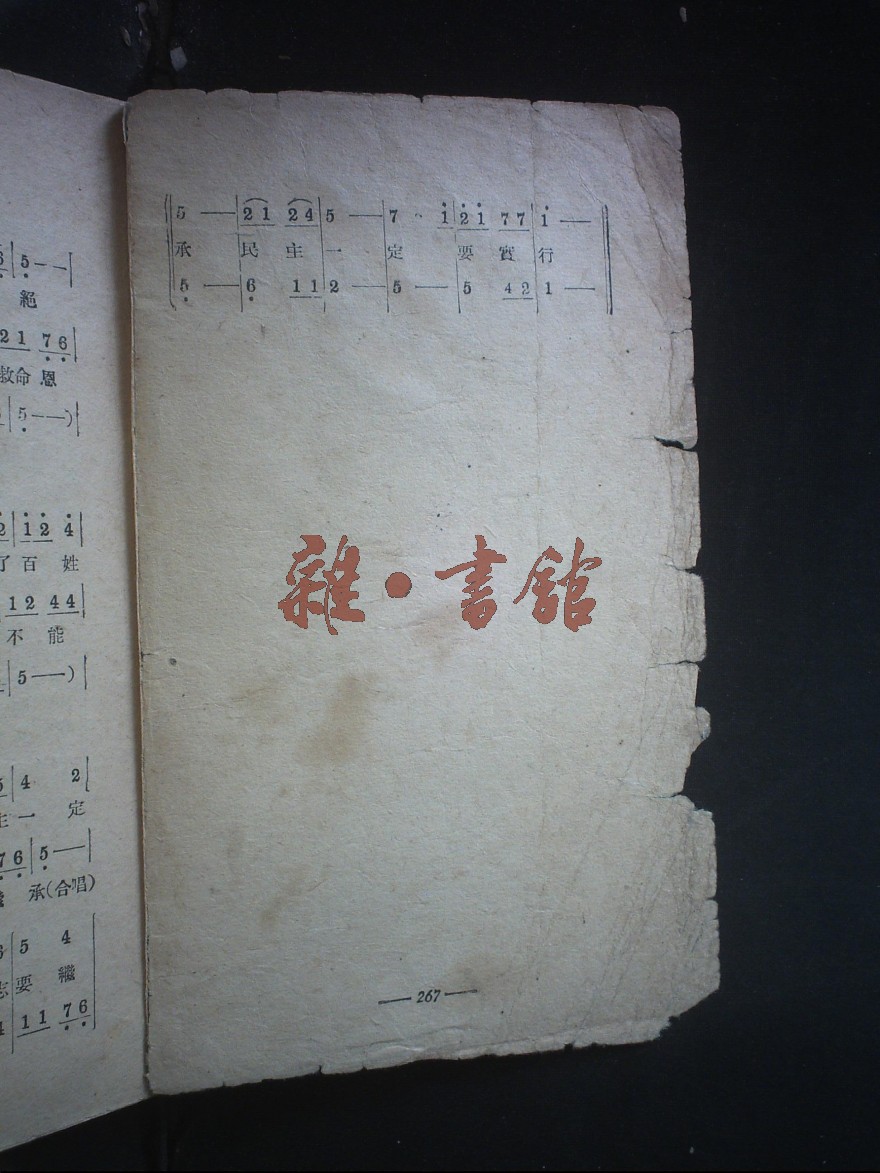 6 5 — —
絕
2 1 7 6
救命恩
5 — — )
2 1 2 4
了百姓
1 2 4 4
不能
5 — — )
5 4 2
主一定
7 6 5 —
承(合唱)
6 5 4
志要繼
4 1 1 7 6
5 — 2 1 2 4 5 — 7 · 1 2 1 7 7 1 —
承民主一定要實行
5 — 6 1 1 2 — 5 — 5 4 2 1 —
雜·書館
— 267 —